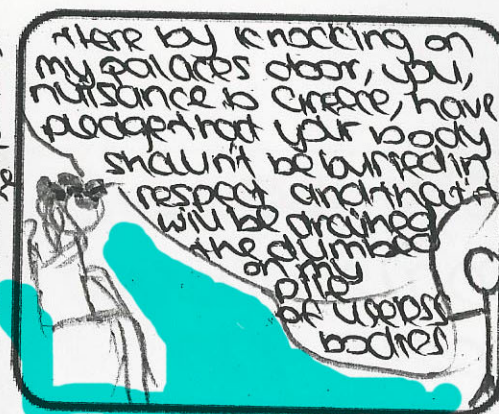 there by knocking on
my palaces door, you,
nuisance to Greece, have
pledge that your body
shaunt be burried in
respect and that it
will be drained
the dumbed
on my
pile
of useless
bodies